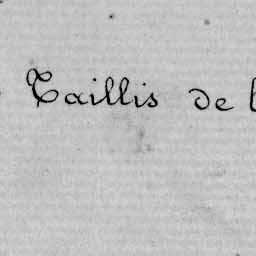 Taillis de